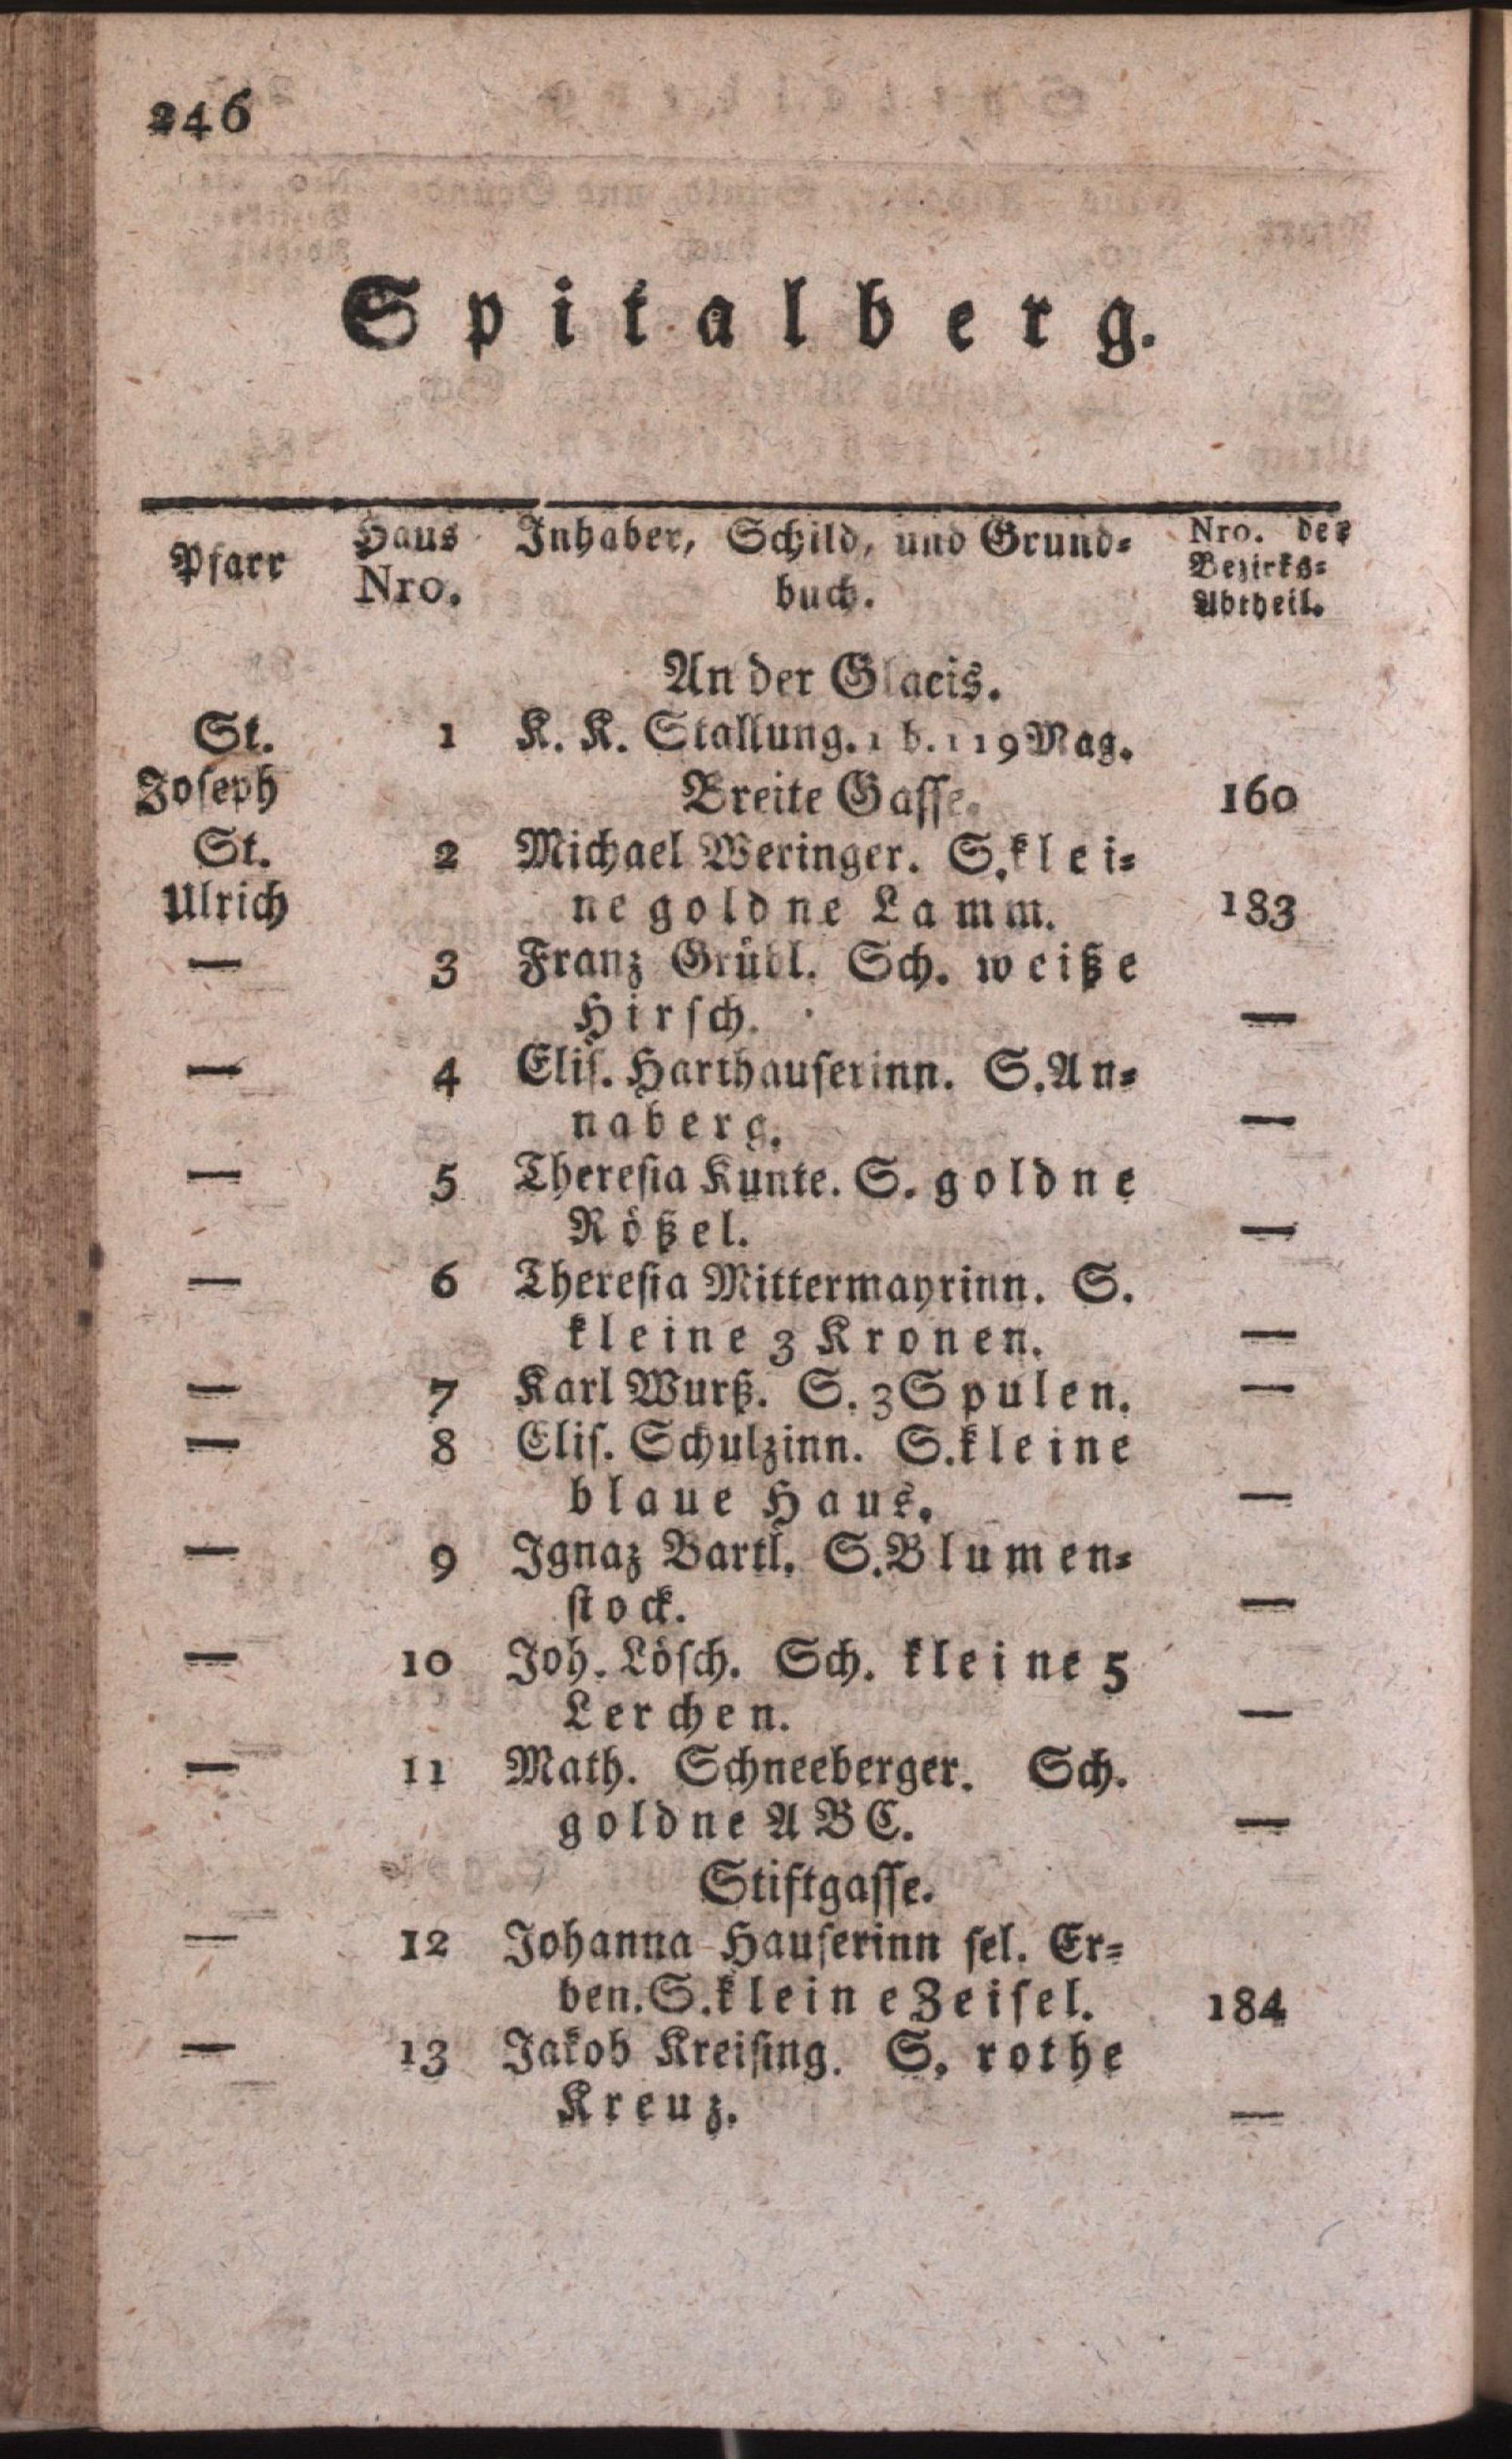 246
Spitalberg.
Pfarr Haus Nro. Inhaber, Schild, und Grund=
buch. Nro. der Bezirks= Abtheil.
An der Glacis.
St. 1 K. K. Stallung. 1 b. 119 Mag.
Joseph Breite Gasse. 160
St. 2 Michael Weringer. S. klei=
Ulrich ne goldne Lamm. 183
— 3 Franz Grübl. Sch. weiße
Hirsch. —
— 4 Elis. Harthauserinn. S. An=
naberg. —
— 5 Theresia Kunte. S. goldne
Rößel. —
— 6 Theresia Mittermayrinn. S.
kleine 3 Kronen. —
— 7 Karl Wurß. S. 3 Spulen. —
— 8 Elis. Schulzinn. S. kleine
blaue Haus. —
— 9 Ignaz Bartl. S. Blumen=
stock. —
— 10 Joh. Lösch. Sch. kleine 5
Lerchen. —
— 11 Math. Schneeberger. Sch.
goldne ABC. —
Stiftgasse.
— 12 Johanna Hauserinn sel. Er=
ben. S. kleine Zeisel. 184
— 13 Jakob Kreising. S. rothe
Kreuz. —